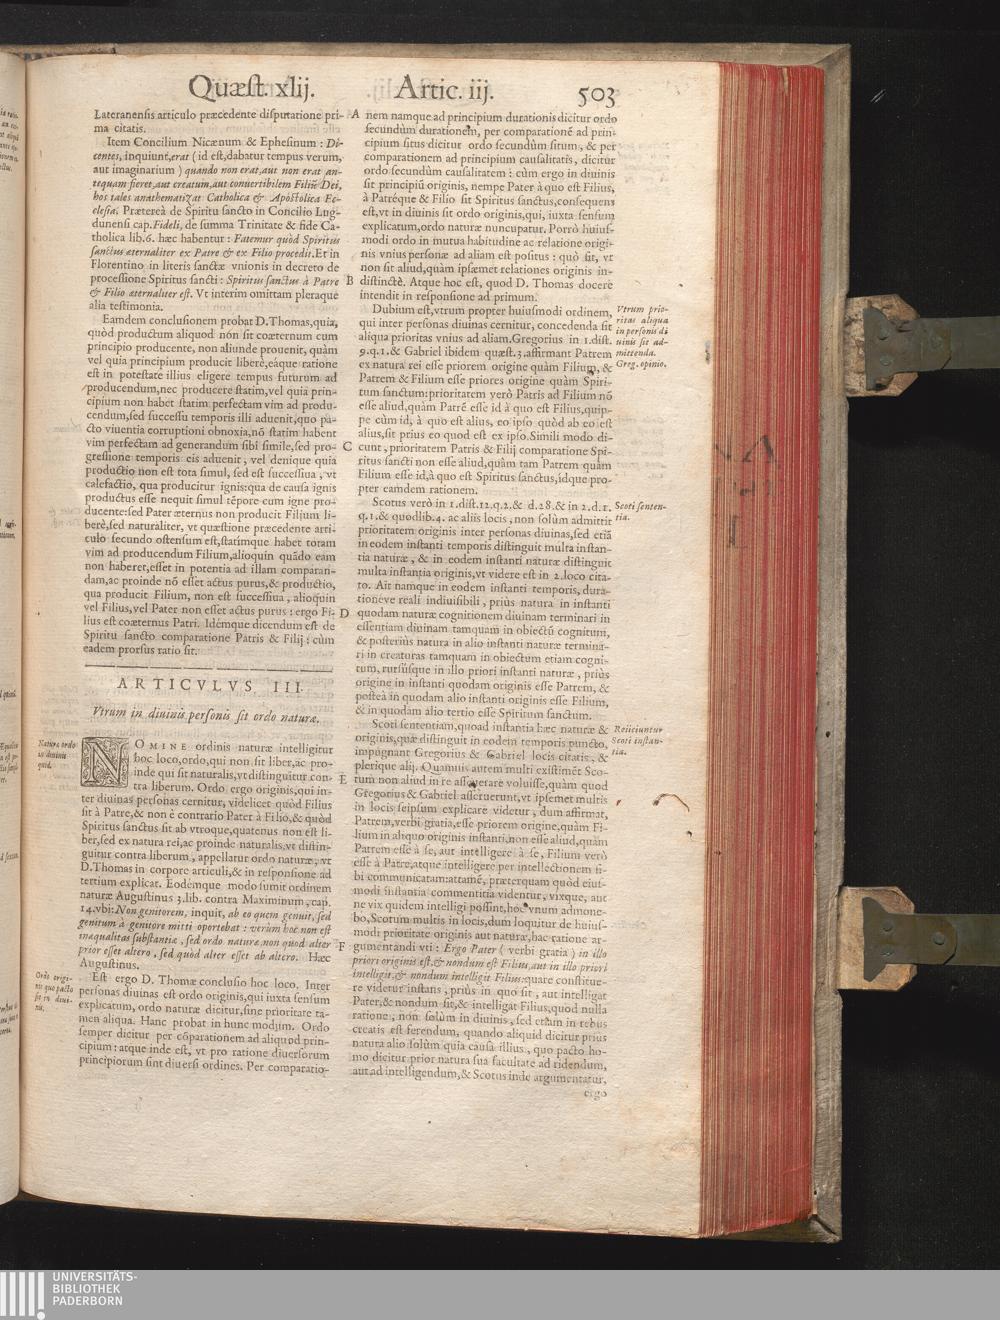 Quæst. xlij. Artic. iij. 503
Lateranensis articulo præcedente disputatione pri-
ma citatis.
Item Concilium Nicænum & Ephesinum : Di-
centes, inquiunt, erat ( id est, dabatur tempus verum,
aut imaginarium ) quando non erat, aut non erat an-
tequam fieret, aut creatum, aut conuertibilem Filiũ Dei,
hos tales anathematizat Catholica & Apostolica Ec-
clesia. Prætereà de Spiritu sancto in Concilio Lug-
dunensi cap. Fideli, de summa Trinitate & fide Ca-
tholica lib. 6. hæc habentur : Fatemur quòd Spiritus
sanctus æternaliter ex Patre & ex Filio procedit. Et in
Florentino in literis sanctæ vnionis in decreto de
processione Spiritus sancti : Spiritus sanctus à Patre
& Filio æternaliter est. Vt interim omittam pleraque
alia testimonia.
Eamdem conclusionem probat D. Thomas, quia,
quòd productum aliquod non sit coæternum cum
principio producente, non aliunde prouenit, quàm
vel quia principium producit liberè, eáque ratione
est in potestate illius eligere tempus futurum ad
producendum, nec producere statim, vel quia prin-
cipium non habet statim perfectam vim ad produ-
cendum, sed successu temporis illi aduenit, quo pa-
cto viuentia corruptioni obnoxia, nõ statim habent
vim perfectam ad generandum sibi simile, sed pro-
gressione temporis eis aduenit, vel denique quia
productio non est tota simul, sed est successiua, vt
calefactio, qua producitur ignis: qua de causa ignis
productus esse nequit simul tẽpore cum igne pro-
ducente: sed Pater æternus non producit Filium li-
berè, sed naturaliter, vt quæstione præcedente arti-
culo secundo ostensum est, statimque habet totam
vim ad producendum Filium, alioquin quãdo eam
non haberet, esset in potentia ad illam comparan-
dam, ac proinde nõ esset actus purus, & productio,
qua producit Filium, non est successiua, alioquin
vel Filius, vel Pater non esset actus purus : ergo Fi-
lius est coæternus Patri. Idémque dicendum est de
Spiritu sancto comparatione Patris & Filij : cùm
eadem prorsus ratio sit.
ARTICVLVS III.
Vtrum in diuinis personis sit ordo naturæ.
Natura ordo
in diuinis
quid.
NOMINE ordinis naturæ intelligitur
hoc loco, ordo, qui non sit liber, ac pro-
inde qui sit naturalis, vt distinguitur con-
tra liberum. Ordo ergo originis, qui in-
ter diuinas personas cernitur, videlicet quòd Filius
sit à Patre, & non è contrario Pater à Filio, & quòd
Spiritus sanctus sit ab vtroque, quatenus non est li-
ber, sed ex natura rei, ac proinde naturalis, vt distin-
guitur contra liberum, appellatur ordo naturæ, vt
D. Thomas in corpore articuli, & in responsione ad
tertium explicat. Eodémque modo sumit ordinem
naturæ Augustinus 3. lib. contra Maximinum, cap.
14. vbi: Non genitorem, inquit, ab eo quem genuit, sed
genitum à genitore mitti oportebat : verùm hoc non est
inæqualitas substantiæ, sed ordo naturæ, non quòd alter
prior esset altero, sed quòd alter esset ab altero. Hæc
Augustinus.
Ordo origi-
nis quo pacto
sit in diui-
nis.
Est ergo D. Thomæ conclusio hoc loco. Inter
personas diuinas est ordo originis, qui iuxta sensum
explicatum, ordo naturæ dicitur, sine prioritate ta-
men aliqua. Hanc probat in hunc modum. Ordo
semper dicitur per cõparationem ad aliquod prin-
cipium : atque inde est, vt pro ratione diuersorum
principiorum sint diuersi ordines. Per comparatio-
A
B
C
D
E
F
nem namque ad principium durationis dicitur ordo
secundùm durationem, per comparationẽ ad prin-
cipium situs dicitur ordo secundùm situm, & per
comparationem ad principium causalitatis, dicitur
ordo secundùm causalitatem : cùm ergo in diuinis
sit principiũ originis, nempe Pater à quo est Filius,
à Patréque & Filio sit Spiritus sanctus, consequens
est, vt in diuinis sit ordo originis, qui, iuxta sensum
explicatum, ordo naturæ nuncupatur. Porrò huius-
modi ordo in mutua habitudine ac relatione origi-
nis vnius personæ ad aliam est positus : quo sit, vt
non sit aliud, quàm ipsæmet relationes originis in-
distinctè. Atque hoc est, quod D. Thomas docere
intendit in responsione ad primum.
Dubium est, vtrum propter huiusmodi ordinem,
qui inter personas diuinas cernitur, concedenda sit
aliqua prioritas vnius ad aliam. Gregorius in 1. dist.
9. q. 1. & Gabriel ibidem quæst. 3. affirmant Patrem
ex natura rei esse priorem origine quàm Filium, &
Patrem & Filium esse priores origine quàm Spiri-
tum sanctum: prioritatem verò Patris ad Filium nõ
esse aliud, quàm Patrẽ esse id à quo est Filius, quip-
pe cùm id, à quo est alius, eo ipso quòd ab eo est
alius, sit prius eo quod est ex ipso. Simili modo di-
cunt, prioritatem Patris & Filij comparatione Spi-
ritus sancti non esse aliud, quàm tam Patrem quàm
Filium esse id, à quo est Spiritus sanctus, idque pro-
pter eamdem rationem.
Vtrum prio-
ritas aliqua
in personis di
uinis sit ad-
mittenda.
Greg. opinio.
Scotus verò in 1. dist. 12. q. 2. & d. 28. & in 2. d. 1.
q. 1. & quodlib. 4. ac aliis locis, non solùm admittit
prioritatem originis inter personas diuinas, sed etiã
in eodem instanti temporis distinguit multa instan-
tia naturæ, & in eodem instanti naturæ distinguit
multa instantia originis, vt videre est in 2. loco cita-
to. Ait namque in eodem instanti temporis, dura-
tionéve reali indiuisibili, priùs natura in instanti
quodam naturæ cognitionem diuinam terminari in
essentiam diuinam tamquam in obiectũ cognitum,
& posteriùs natura in alio instanti naturæ termina-
ri in creaturas tamquam in obiectum etiam cogni-
tum, rursùsque in illo priori instanti naturæ, priùs
origine in instanti quodam originis esse Patrem, &
posteà in quodam alio instanti originis esse Filium,
& in quodam alio tertio esse Spiritum sanctum.
Scoti senten-
tia.
Scoti sententiam, quoad instantia hæc naturæ &
originis, quæ distinguit in eodem temporis puncto,
impugnant Gregorius & Gabriel locis citatis, &
plerique alij. Quamuis autem multi existimẽt Sco-
tum non aliud in re asseuerare voluisse, quàm quod
Gregorius & Gabriel asseruerunt, vt ipsemet multis
in locis seipsum explicare videtur, dum affirmat,
Patrem, verbi gratia, esse priorem origine, quàm Fi-
lium in aliquo originis instanti, non esse aliud, quàm
Patrem esse à se, aut intelligere à se, Filium verò
esse à Patre, atque intelligere per intellectionem si-
bi communicatam: attamẽ, præterquam quòd eius-
modi instantia commentitia videntur, vixque, aut
ne vix quidem intelligi possint, hoc vnum admone-
bo, Scotum multis in locis, dum loquitur de huius-
modi prioritate originis aut naturæ, hac ratione ar-
gumentandi vti : Ergo Pater ( verbi gratia ) in illo
priori originis est, & nondum est Filius, aut in illo priori
intelligit, & nondum intelligit Filius: quare constitue-
re videtur instans, priùs in quo sit, aut intelligat
Pater, & nondum sit, & intelligat Filius, quod nulla
ratione, non solùm in diuinis, sed etiam in rebus
creatis est ferendum, quando aliquid dicitur prius
natura alio solùm quia causa illius, quo pacto ho-
mo dicitur prior natura sua facultate ad ridendum,
aut ad intelligendum, & Scotus inde argumentatur,
ergo
Reiiciuntur
Scoti instan-
tia.
UNIVERSITÄTS-
BIBLIOTHEK
PADERBORN